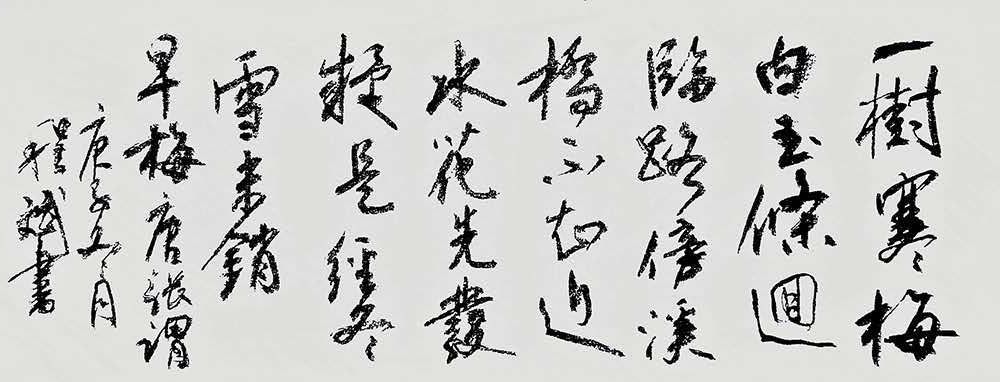 一樹寒梅
白玉條迴
臨路傍溪
橋不知近
水花先發
疑是經冬
雪未銷
早梅唐張謂
庚子五月
程斌書